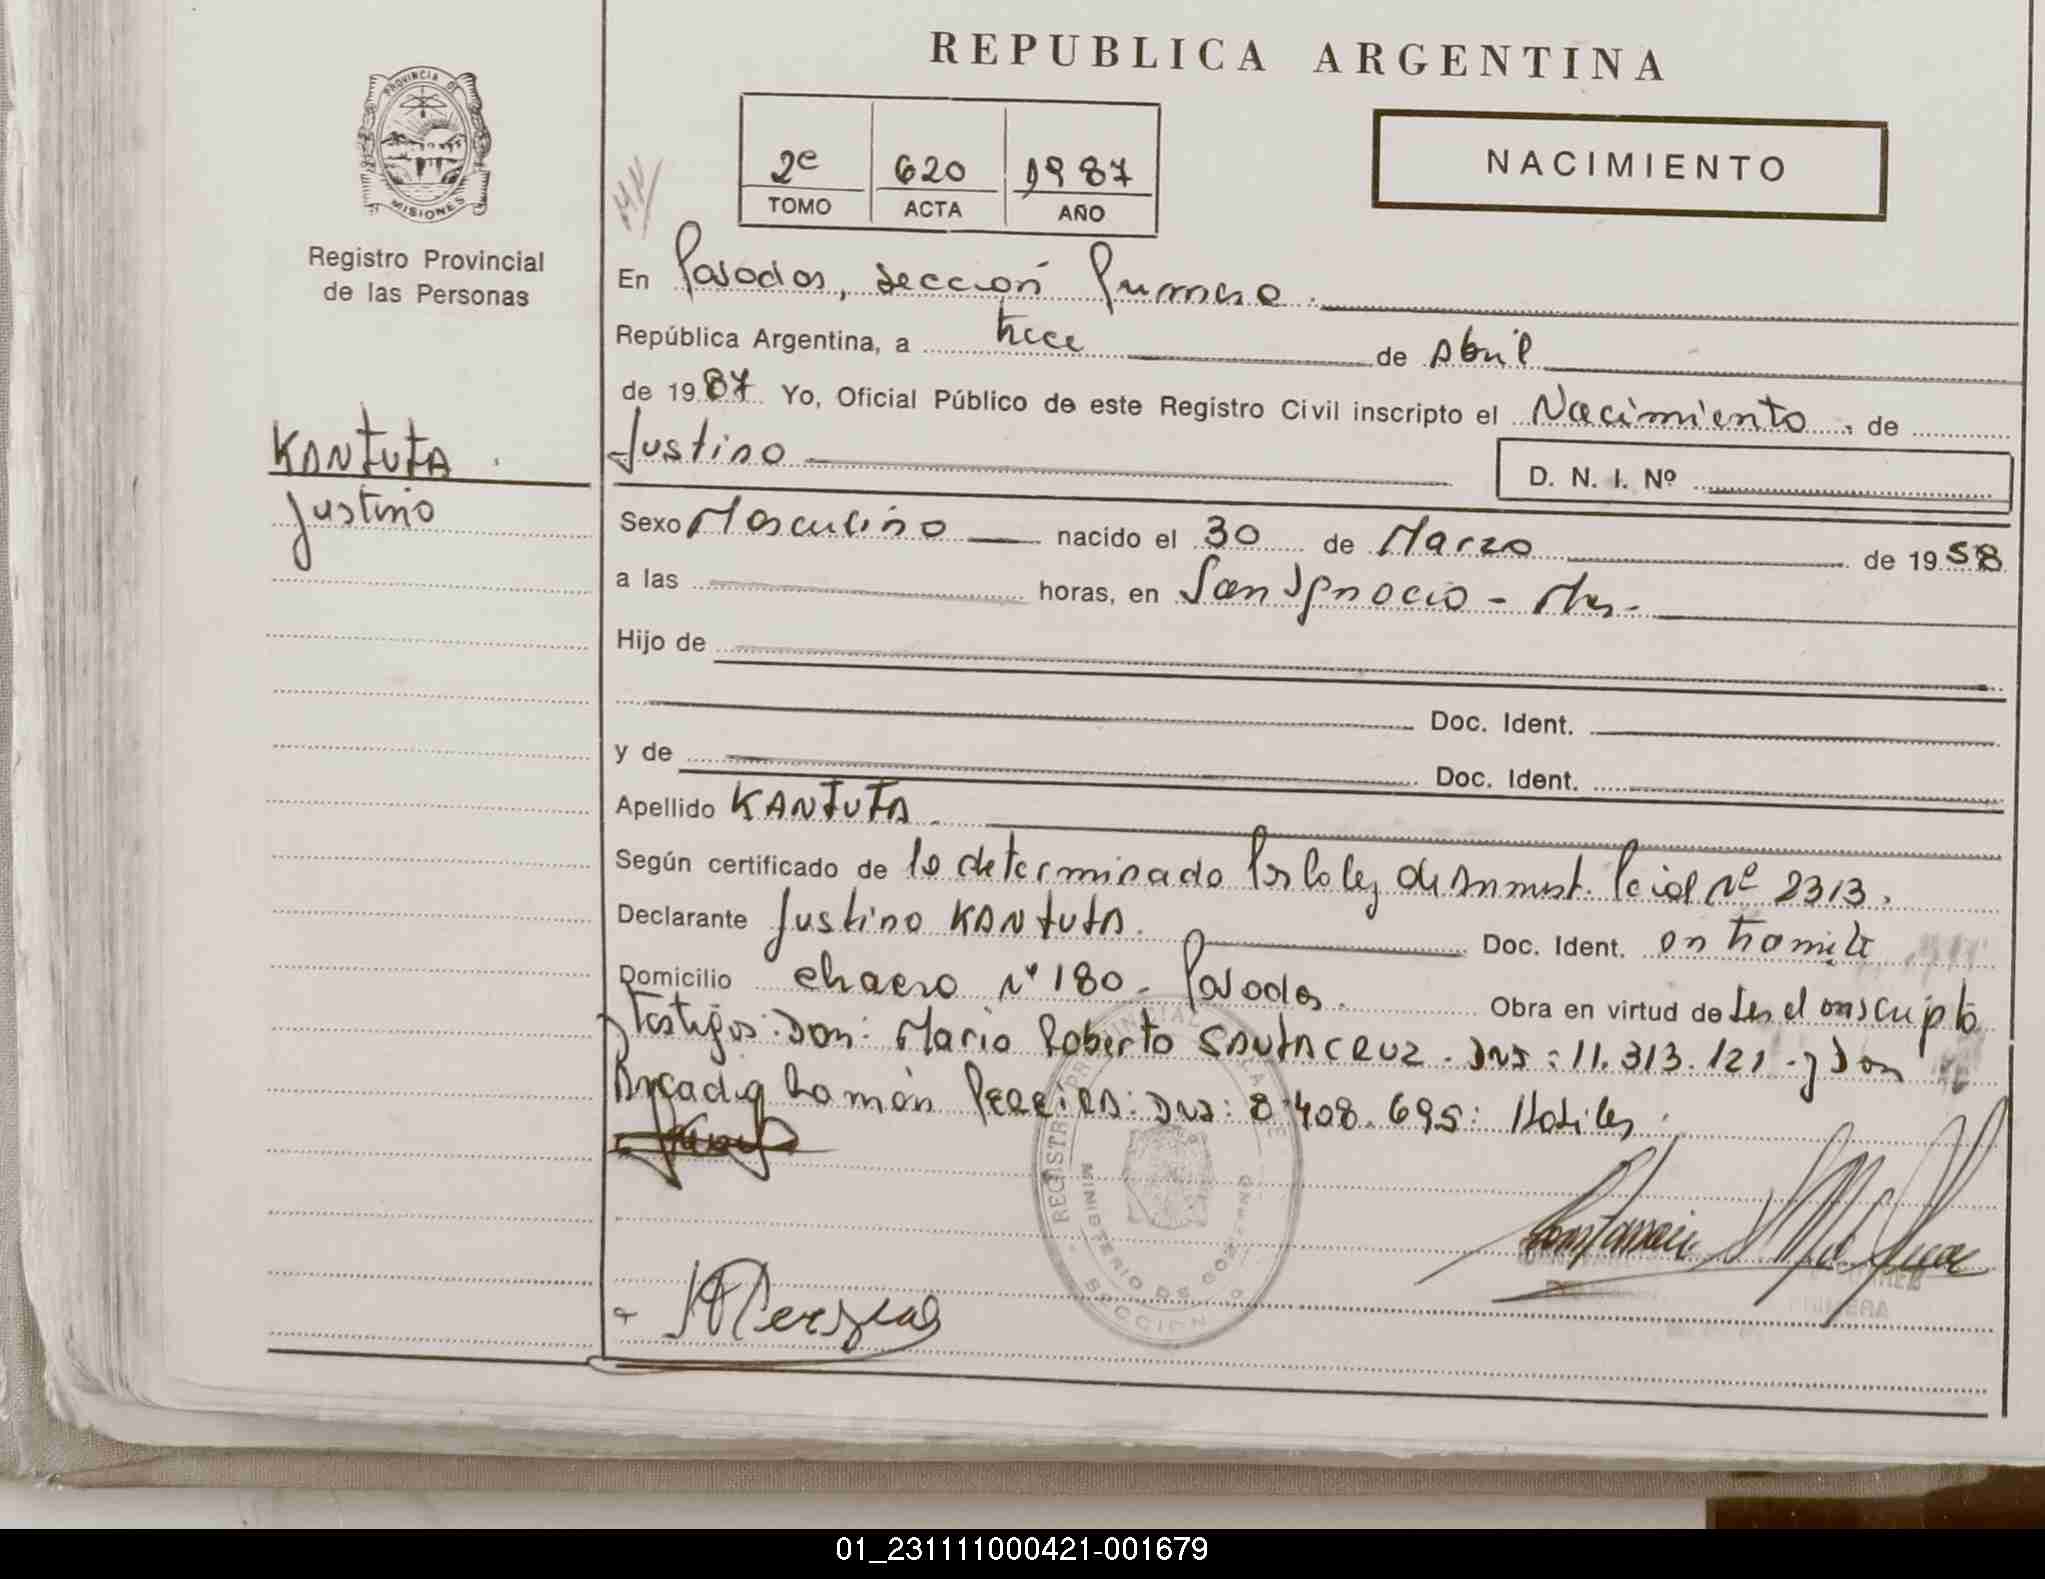 REPUBLICA ARGENTINA
PROVINCIA DE
MISIONES
Registro Provincial
de las Personas
2e 620 1987
TOMO ACTA AÑO
NACIMIENTO
En Posadas, sección Primera.
República Argentina, a trece de Abril
de 1987 Yo, Oficial Público de este Registro Civil inscripto el Nacimiento. de
Justino D. N. I. Nº
KANTUTA.
Justino
Sexo Masculino nacido el 30 de Marzo de 1958
a las horas, en San Ignacio - Mnes-
Hijo de
Doc. Ident.
y de Doc. Ident.
Apellido KANTUTA.
Según certificado de lo determinado Por la ley de Amnist. Pcial Nº 2313.
Declarante Justino KANTUTA. Doc. Ident. en tramite
Domicilio chacra Nº 180. Posadas. Obra en virtud de Ser el inscripto
Testigos: Don: Mario Roberto SANTACRUZ. DNI: 11.313.121. y Don
Arcadio Ramón PEREIRA: DNI: 8.408.695: Habiles.
REGISTRO PROVINCIAL DE LAS
MINISTERIO DE GOBIERNO
SECCION
PRIMERA
01_231111000421-001679